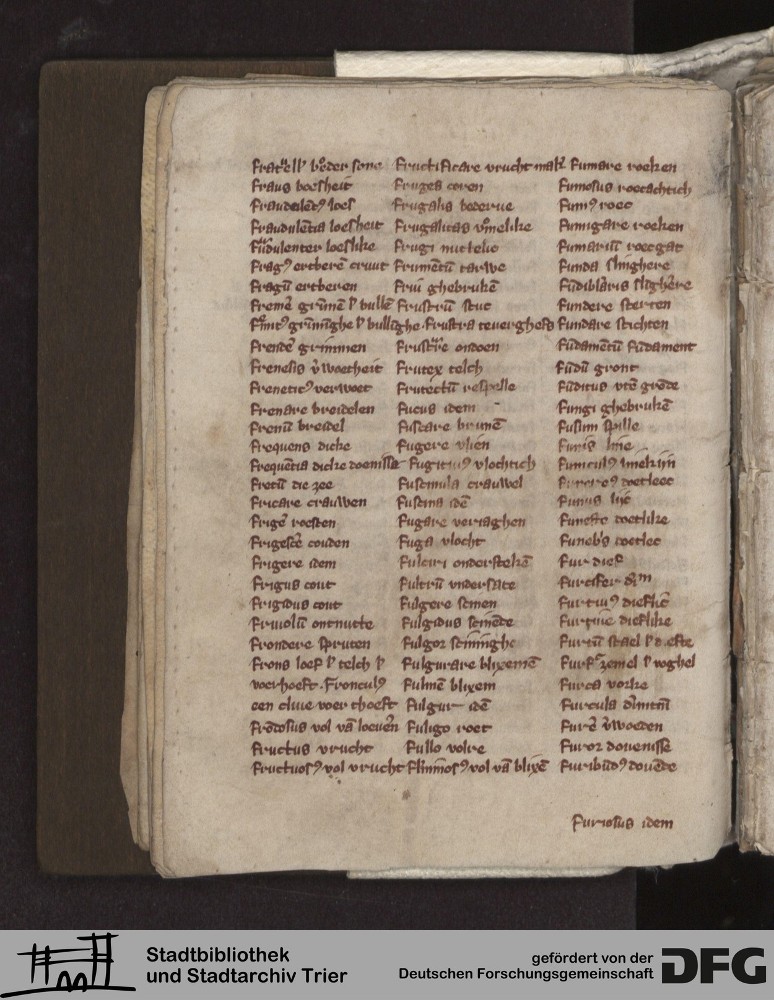 Fratuell' broder sone
Fraus boesheit
Fraudulētꝰ loes
Fraudulētia loesheit
Fraudulenter loeslike
Fragꝰ ertberē cruut
Fragū ertberen
Fremē grimē l' bullē
Frendē grimmen
Frenesis v̄woetheit
Freneticꝰ verwoet
Frenare breidelen
Frenū breidel
Frequens dicke
Frequētia dicke doenisse
Fretū die zee
Fricare crauwen
Frigē roesten
Frigescē couden
Frigere idem
Frigus cout
Frigidus cout
Friuolū onnutte
Frondere spruten
Frons loef l' telch l'
voerhoeft. Fronculꝰ
een cluie voer thoeft
Frōdosus vol vā loeuen
Fructus vrucht
Fructuosꝰ vol vrucht
Fructificare vrucht mak'
Fruges coren
Frugalis bederue
Frugalitas
Frugi nuttelic
Frumētū tarwe
Frui ghebrukē
Frustrū stuc
Frustra teuerghefs
ondoen
Frutex telch
Frutectū respelle
Fucus idem
Fuscare brunē
Fugere vlien
Fugitiuꝰ vlochtich
Fuscinula crauwel
Fuscina idē
Fugare veriaghen
Fuga vlocht
Fulciri onderstekē
Fultrū vndersate
Fulgere scinen
Fulgidus scinēde
Fulgor scininghe
Fulgurare blixemē
Fulmē blixem
Fulgur idē
Fuligo roet
Fullo volre
vol vā blixē
Fumare roeken
Fumosus roecachtich
Fumꝰ roec
Fumigare roeken
Fumariū roecgat
Funda slinghere
Fūdiblaris slighēre
Fundere storten
Fundare stichten
Fūdamētū fūdament
Fūdū gront
Fūditus vtē grōde
Fungi ghebrukē
Fusum spille
Funis line
Funiculꝰ
Funus lijc
Funeste doetlike
Funebris doetlec
Fur dief
Furcifer
Furtiuꝰ dieflic
Furtiue dieflike
Furtū stael l' diefte
Furfur zemel l' wghel
Furca vorke
Furcula
Furē v̄woeden
Furor douenisse
Furibūdꝰ douēde
Furiosus idem
Stadtbibliothek
und Stadtarchiv Trier
gefördert von der
Deutschen Forschungsgemeinschaft
DFG